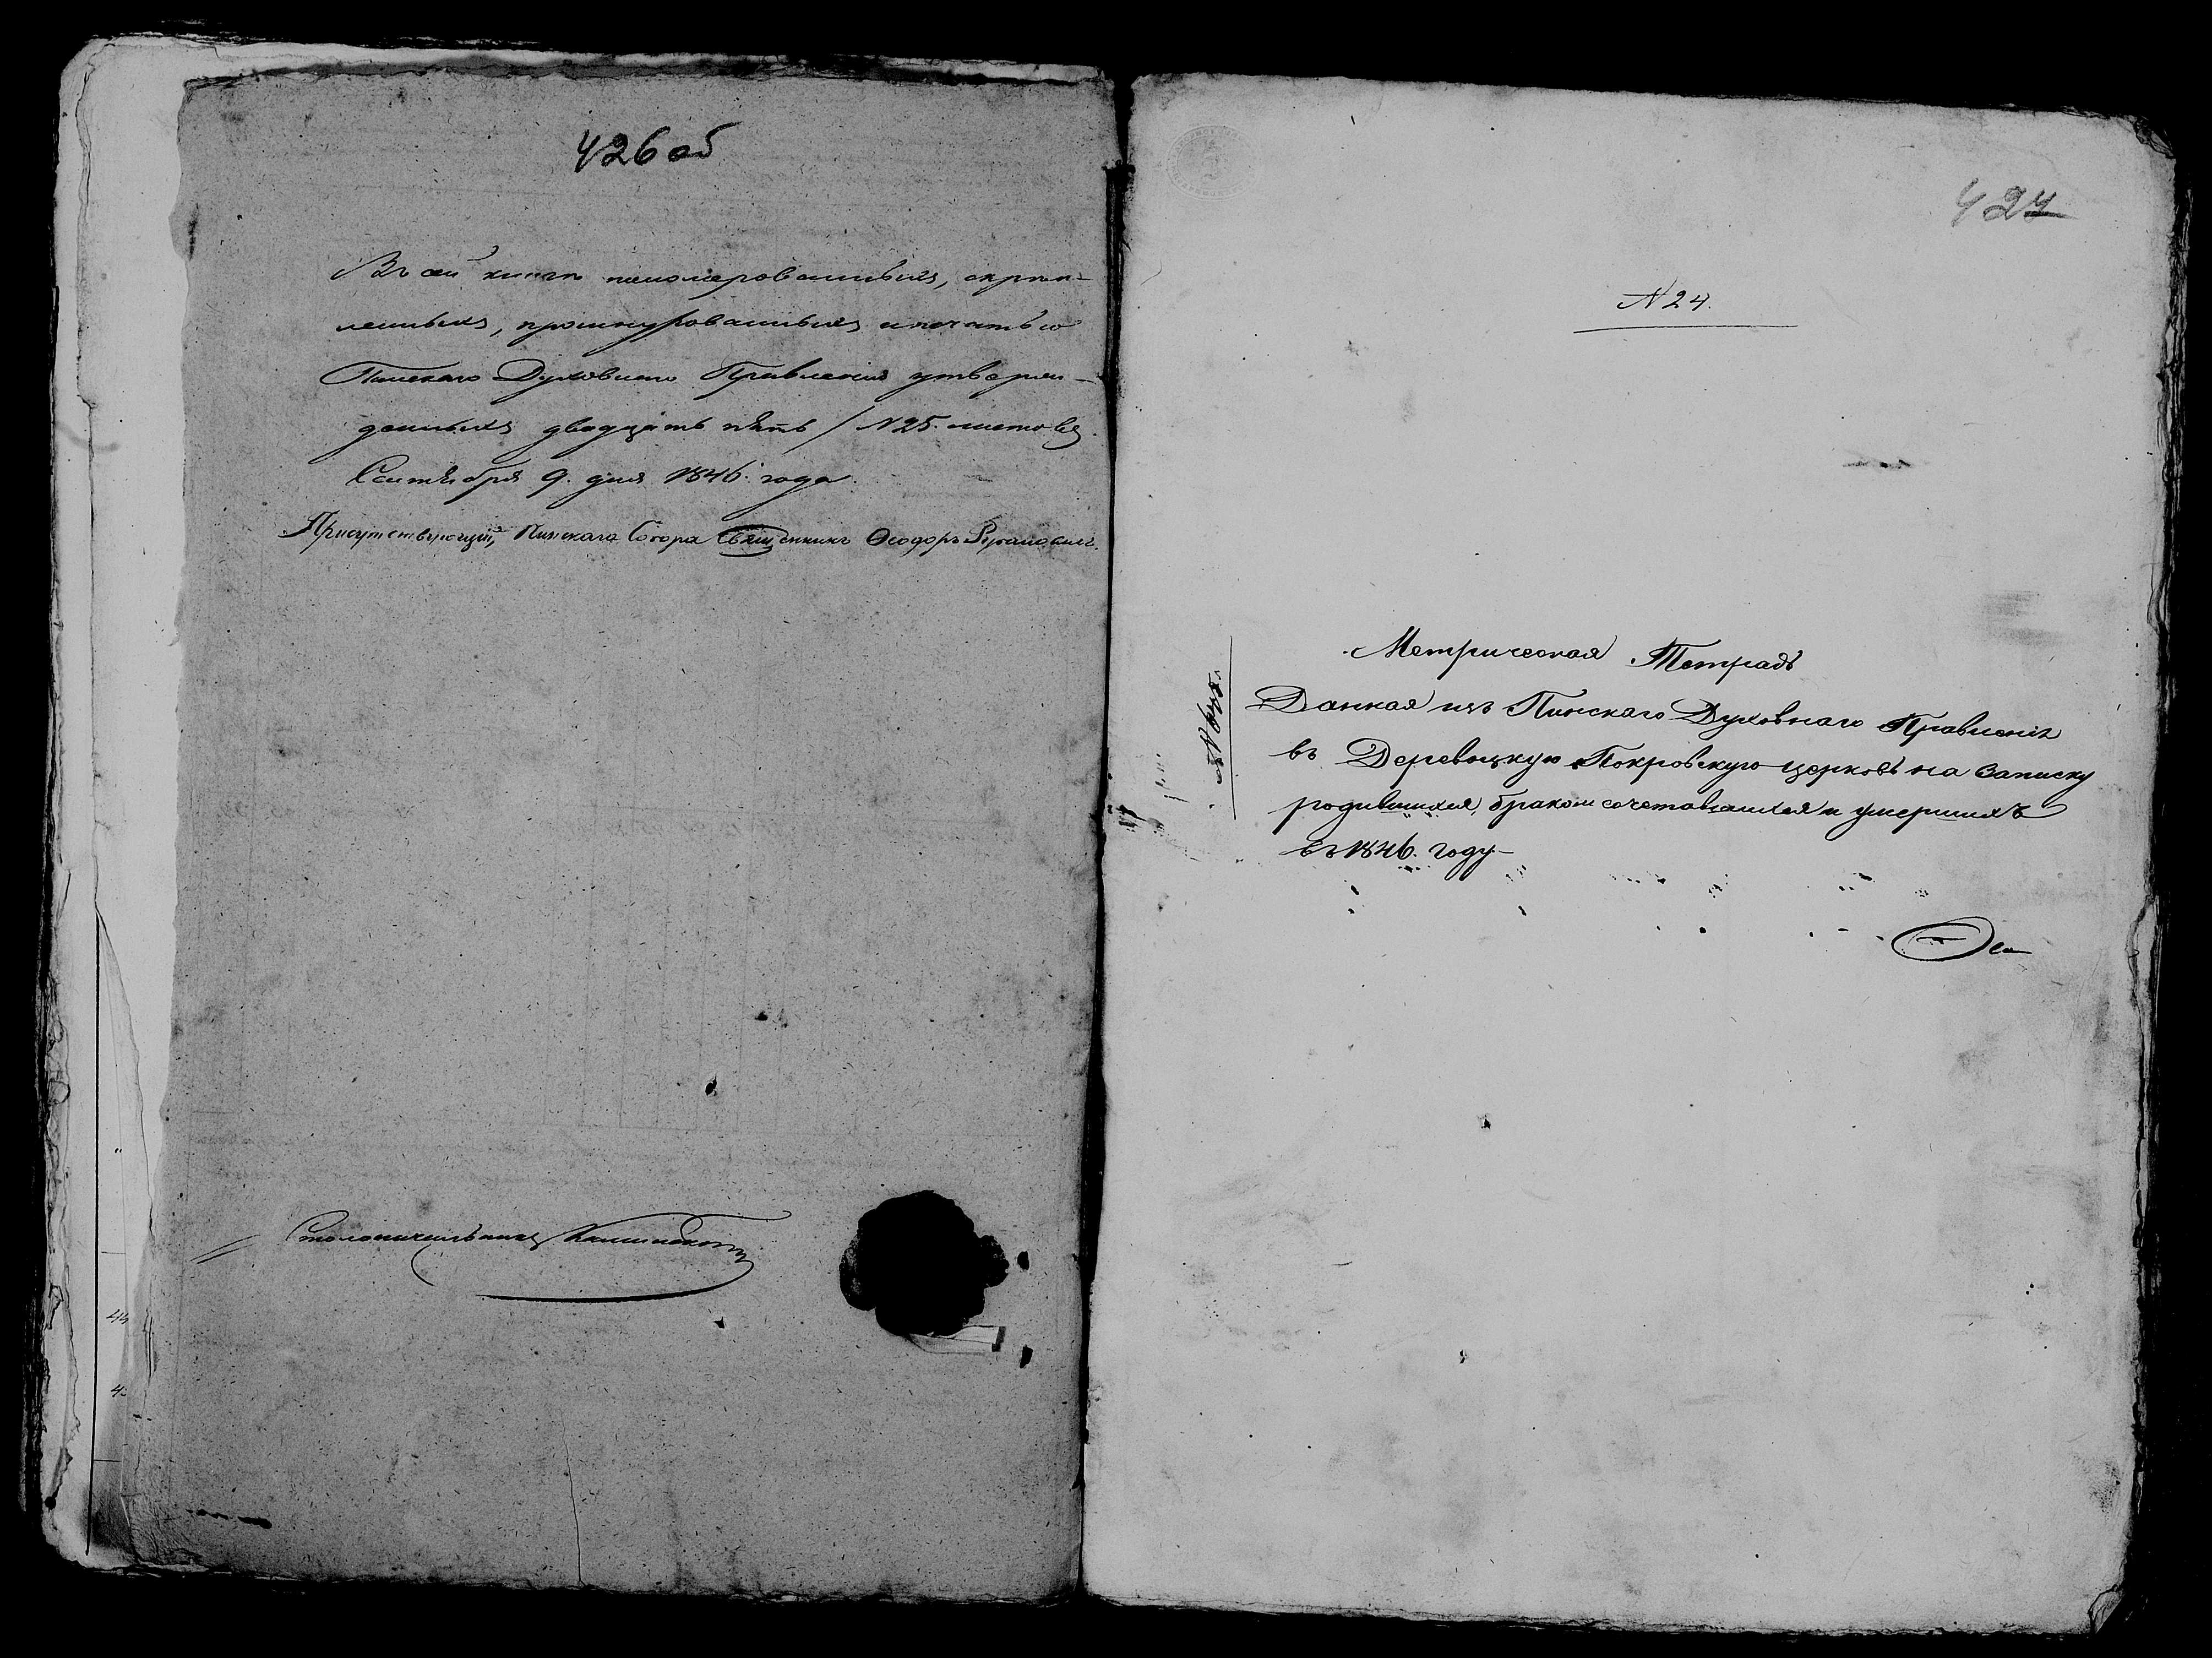 426 об
Въ сей книгѣ пономерованныхъ, скрѣп-
ленныхъ, прошнурованныхъ и печатью
Пинскаго Духовнаго Правленія утверж-
денныхъ двадцать пять / N 25. листовъ
Сентября 9. дня 1846. года.
Присутствующій, Пинскаго Собора Священникъ Ѳеодоръ
Столоначальникъ
427
N 24.
Метрическая Тетрадь
Данная изъ Пинскаго Духовнаго Правленія
въ Деревоцкую Покровскую церковь на записку
родившихся, бракомъ сочетавшихся и умершихъ
въ 1846. году